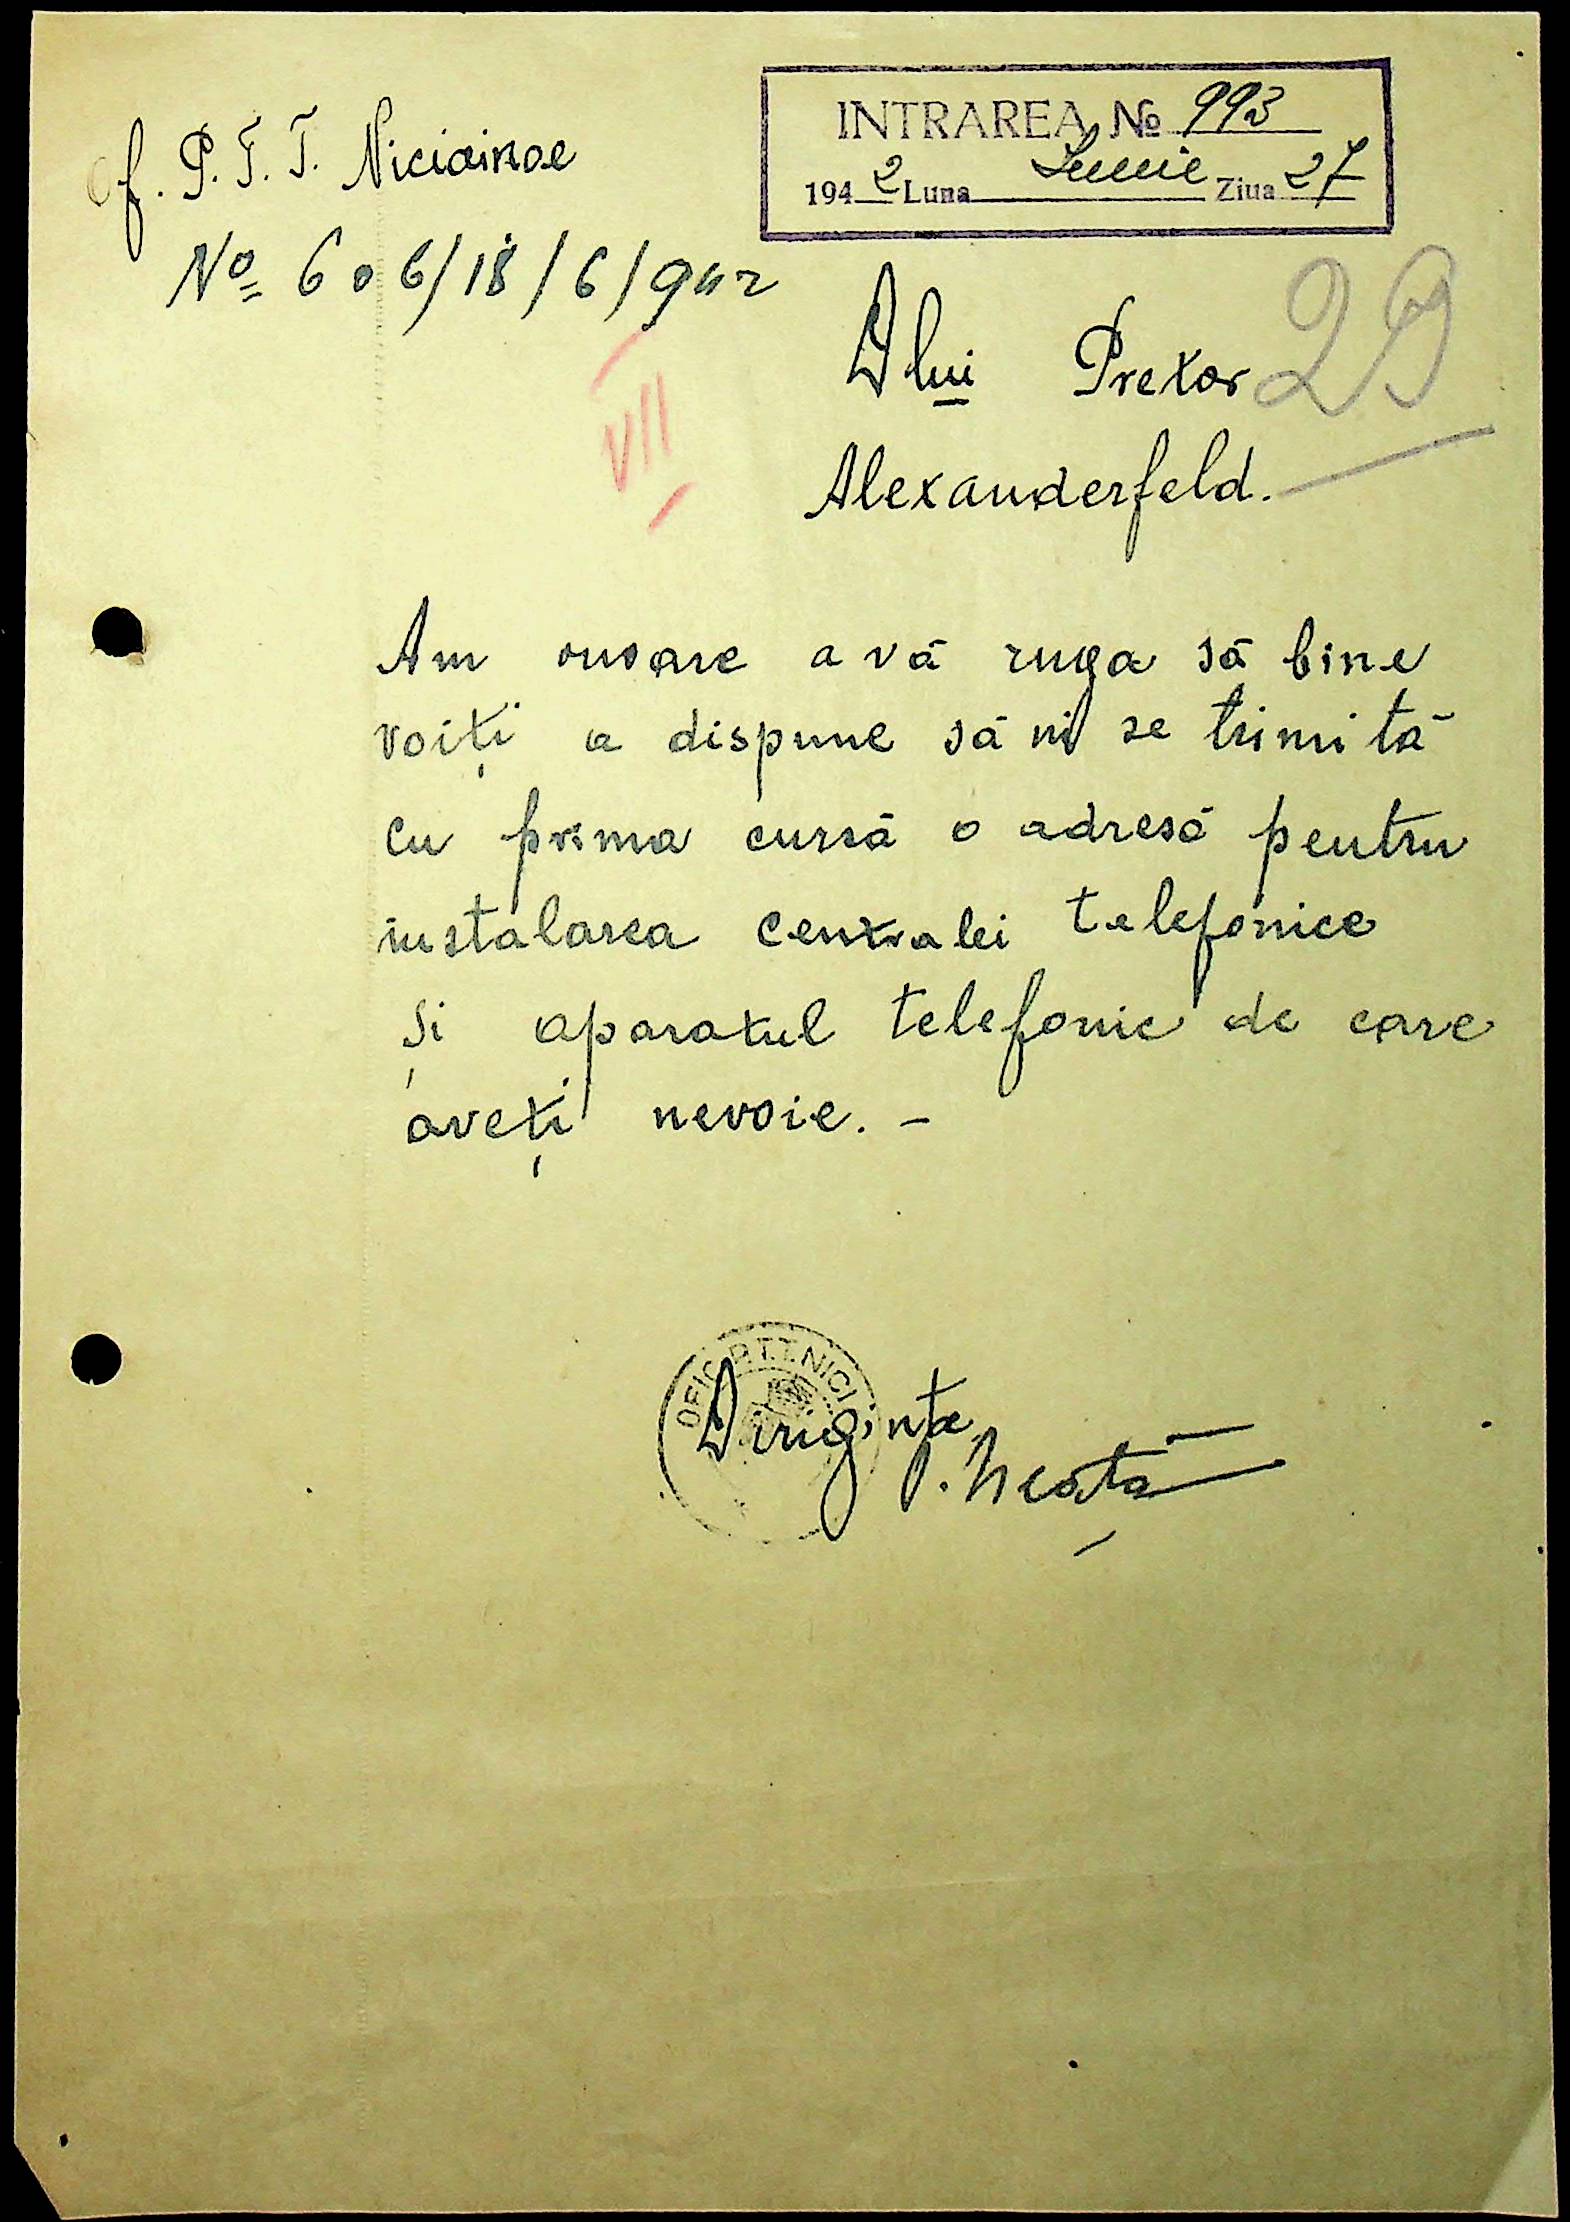 Of. P.T.T. Niciainoe
INTRAREA № 993
1942 Luna Iunie Ziua 27
No 606/18/6/942
29
VII
Dlui Pretor
Alexanderfeld.
Am onoare a vă ruga să bine
voiți a dispune să ni se trimită
cu prima cursă o adresă pentru
instalarea centralei telefonice
și aparatul telefonic de care
aveți nevoie. –
OFIC P.T.T. NICI
Diriginta
P. Neată